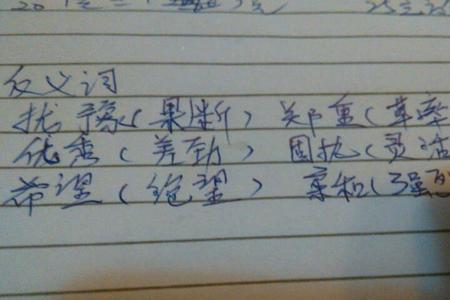 反义词
扰豫（果断） 郑重（草率
优秀（差劲） 固执（灵活
希望（绝望） 亲和（强